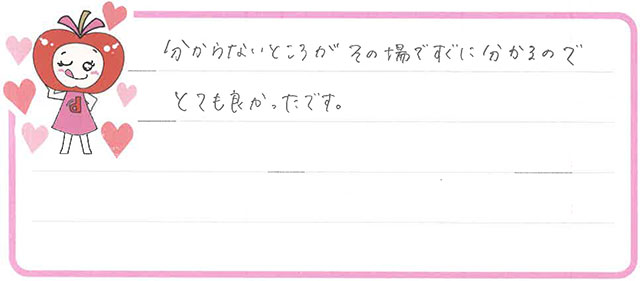 分からないところが その場ですぐに分かるので
とても良かったです。